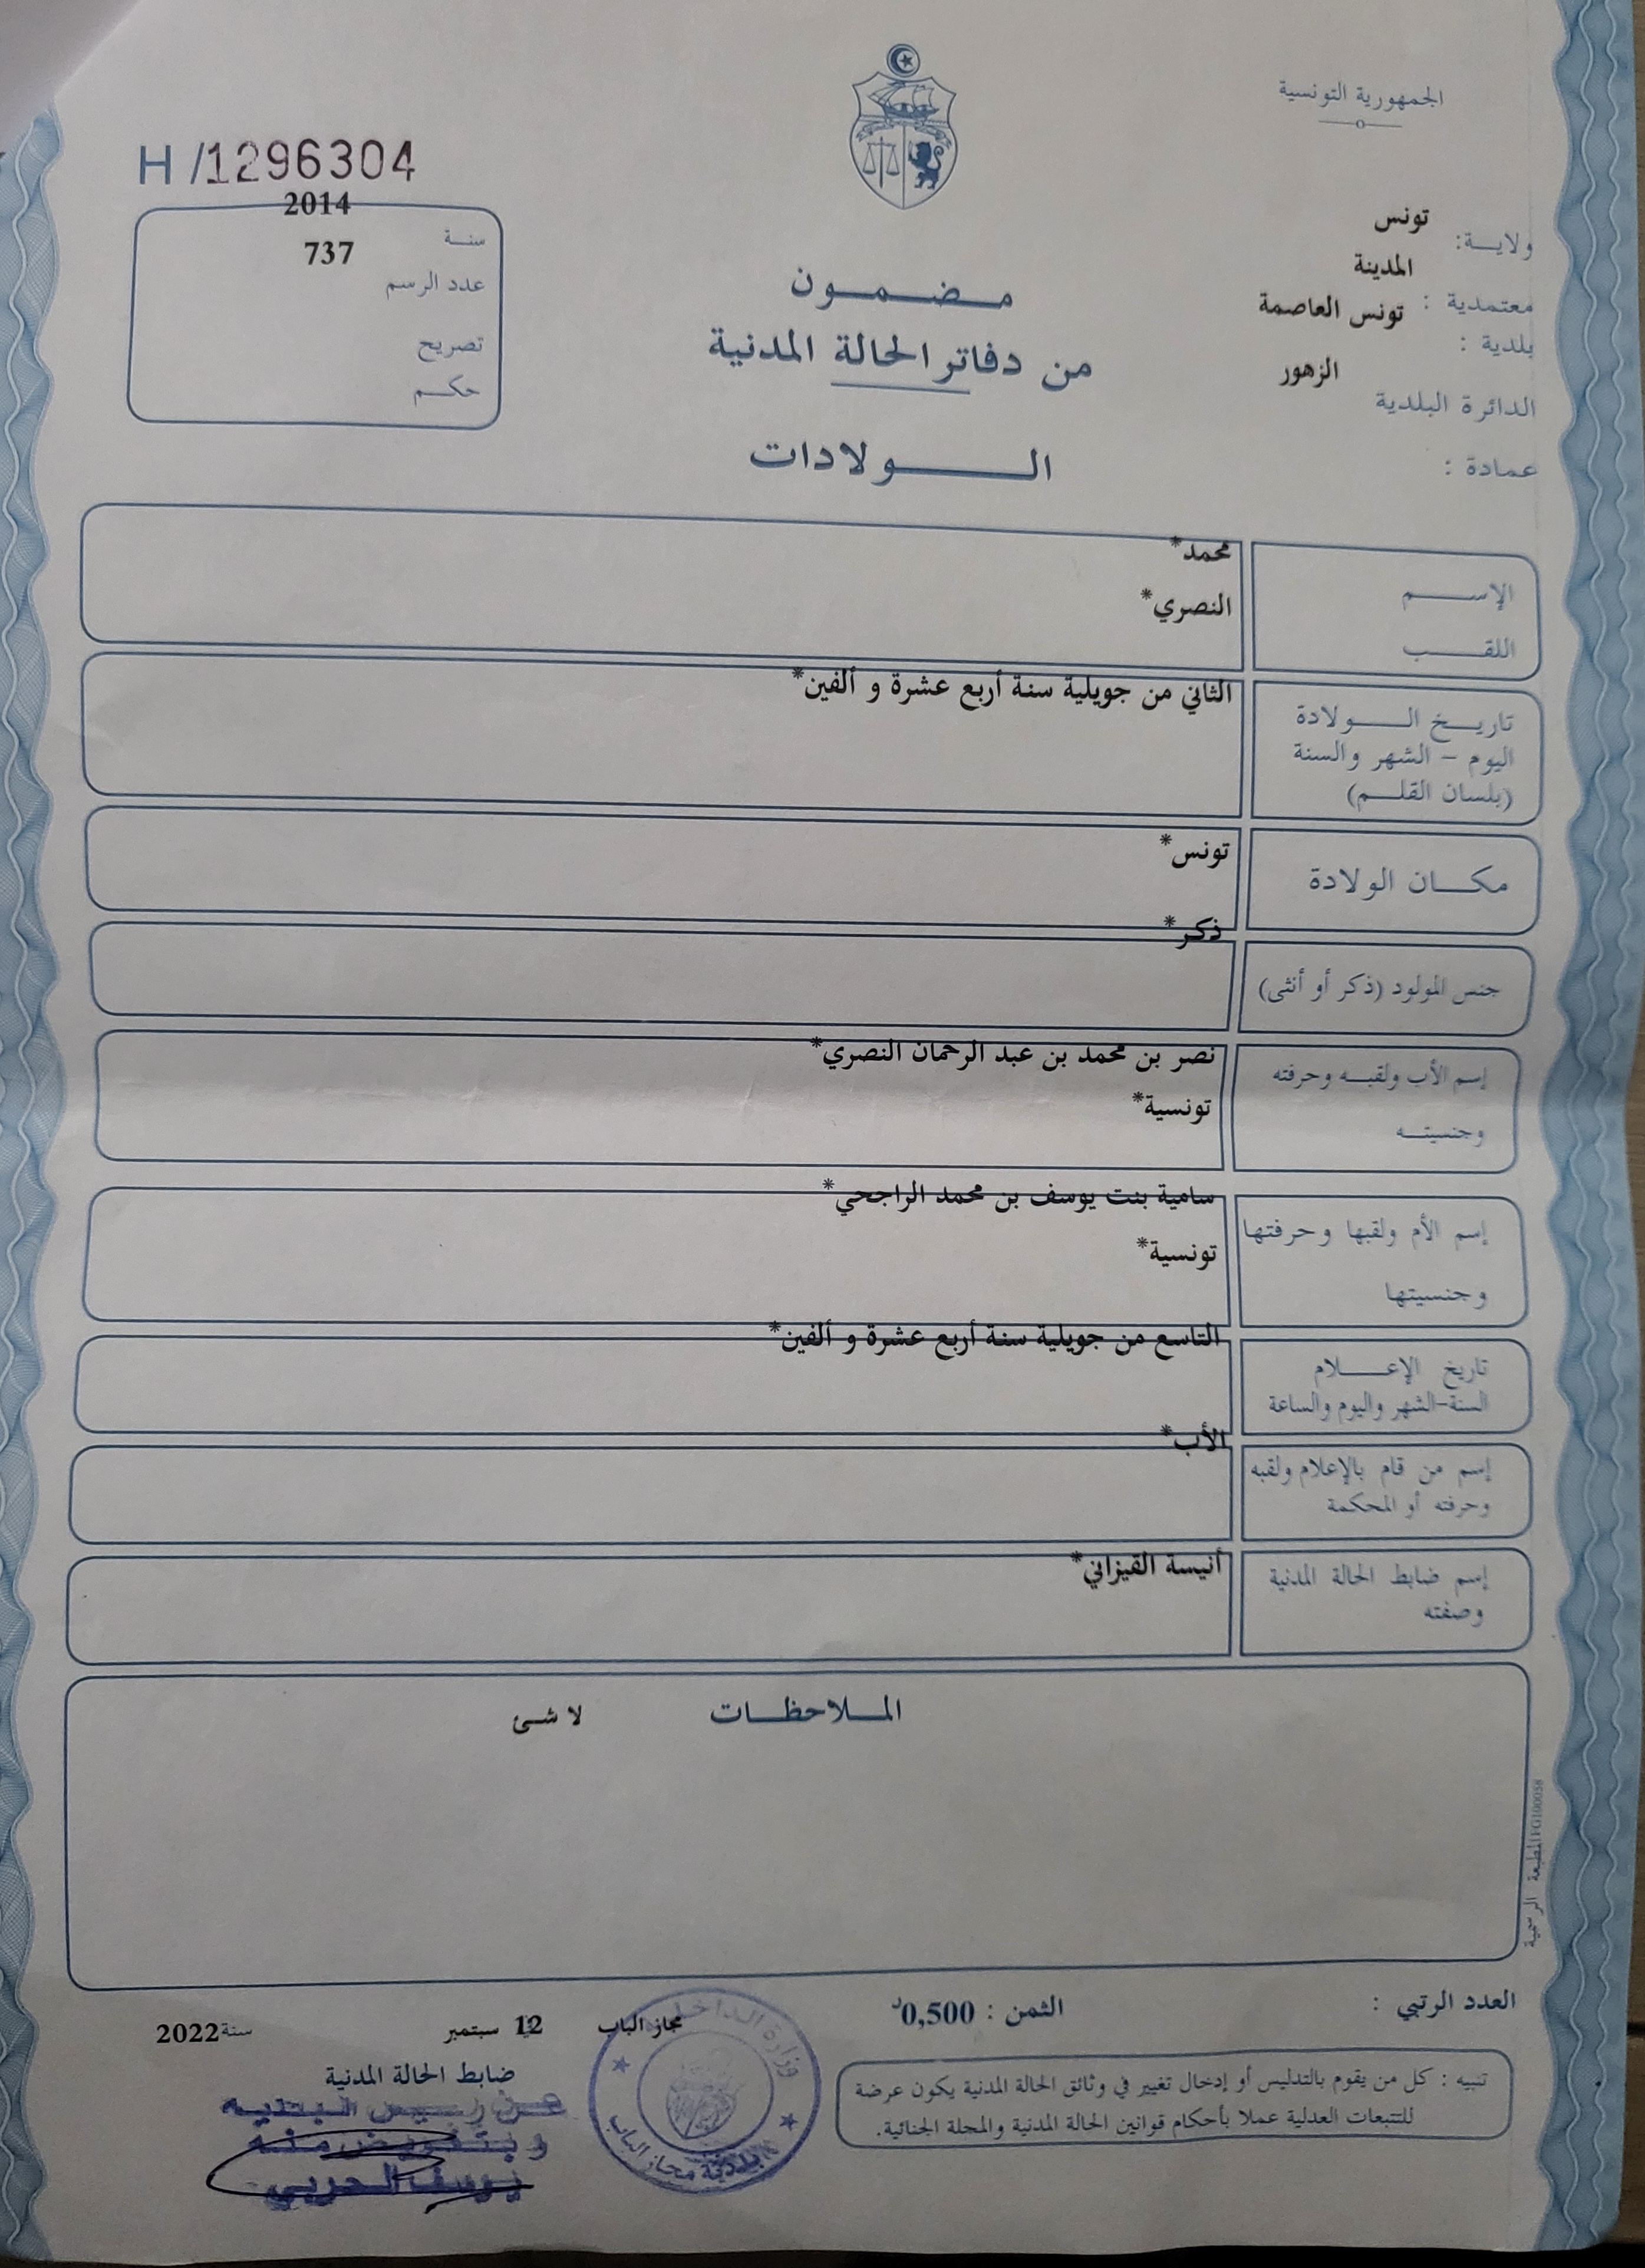 الجمهورية التونسية
H /1296304
ولايـــة: تونس
معتمدية : المدينة
بلدية : تونس العاصمة
الدائرة البلدية الزهور
عمادة :
سنـــة 2014
عدد الرسم 737
تصريح
حكـــم
مـضـمـون
من دفاتر الحالة المدنية
الــولادات
الإســـم محمد*
اللقـــب النصري*
تاريــخ الــولادة الثاني من جويلية سنة أربع عشرة و ألفين*
اليوم – الشهر والسنة
(بلسان القلـــم)
مكــان الولادة تونس*
جنس المولود (ذكر أو أنثى) ذكر*
إسم الأب ولقبــه وحرفته نصر بن محمد بن عبد الرحمان النصري*
وجنسيتــه تونسية*
إسم الأم ولقبها وحرفتها سامية بنت يوسف بن محمد الراجحي*
وجنسيتها تونسية*
تاريخ الإعـــلام التاسع من جويلية سنة أربع عشرة و ألفين*
السنة-الشهر واليوم والساعة
إسم من قام بالإعلام ولقبه الأب*
وحرفته أو المحكمة
إسم ضابط الحالة المدنية أنيسة القيزاني*
وصفته
الملاحظــات لا شئ
المطبعة الرسمية FG100058
العدد الرتبي :
الثمن : 0,500د
مجاز الباب 12 سبتمبر سنة 2022
ضابط الحالة المدنية
عن رئيس البلدية
وبتفويض منه
يوسف الحربي
وزارة الداخلية
بلدية مجاز الباب
تنبيه : كل من يقوم بالتدليس أو إدخال تغيير في وثائق الحالة المدنية يكون عرضة
للتتبعات العدلية عملا بأحكام قوانين الحالة المدنية والمجلة الجنائية.